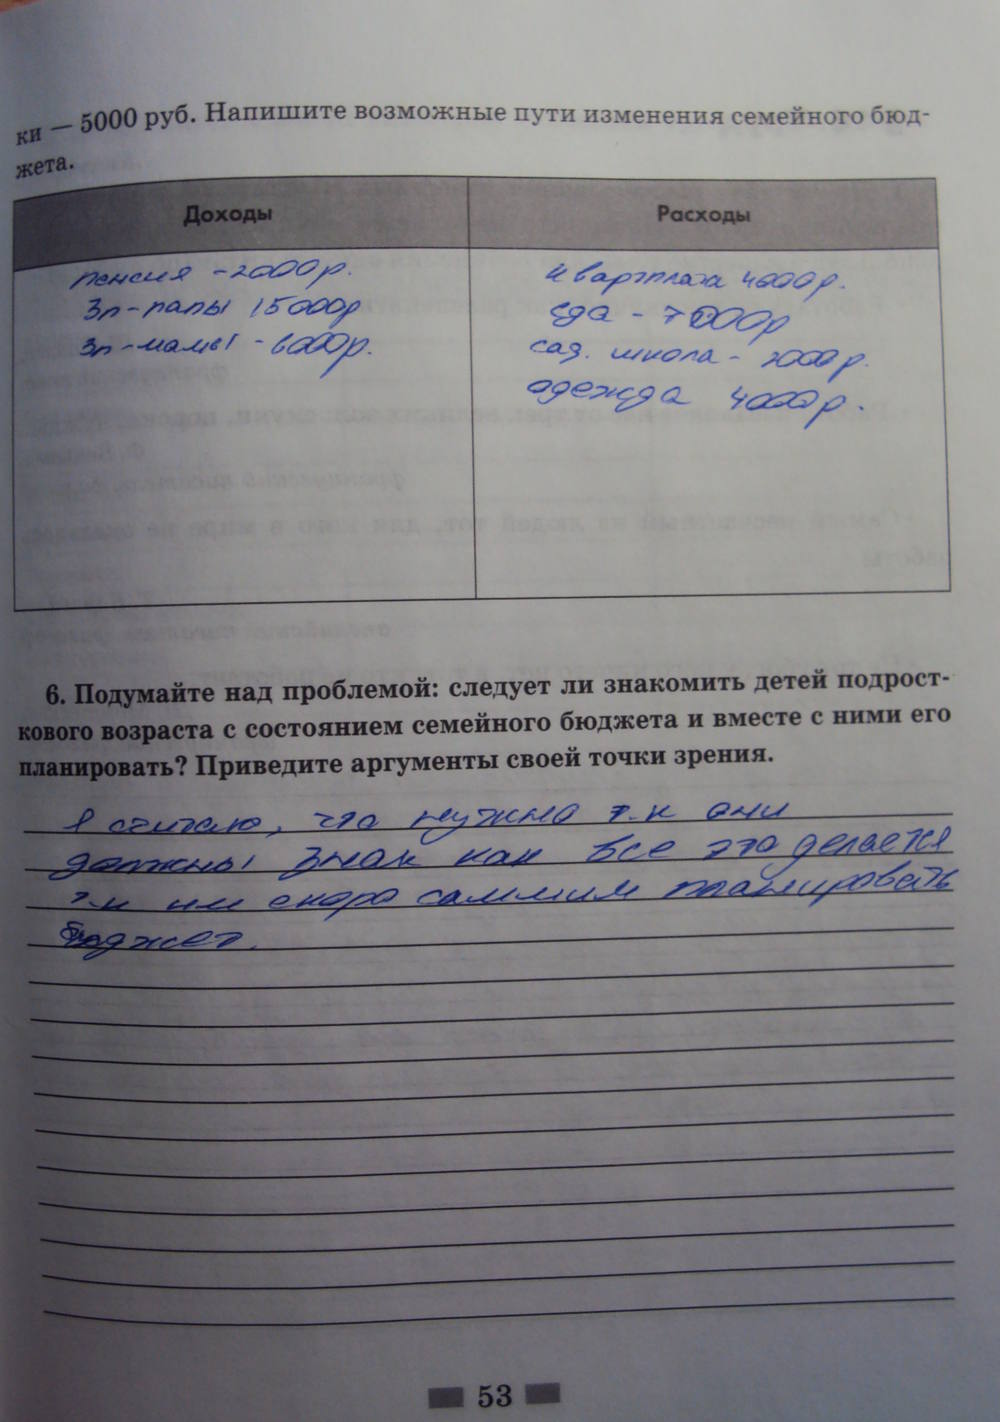 ки — 5000 руб. Напишите возможные пути изменения семейного бюд-
жета.
Доходы
Расходы
пенсия - 2000р.
Зп-папы 15000р
Зп-мамы - 6000р.
квартплата 4000р.
Еда - 7000р
сад. школа - 2000р.
одежда 4000р.
6. Подумайте над проблемой: следует ли знакомить детей подрост-
кового возраста с состоянием семейного бюджета и вместе с ними его
планировать? Приведите аргументы своей точки зрения.
Я считаю, что нужно т.к они
должны знак как все это делается
т.к им скоро самим планировать
бюджет.
53